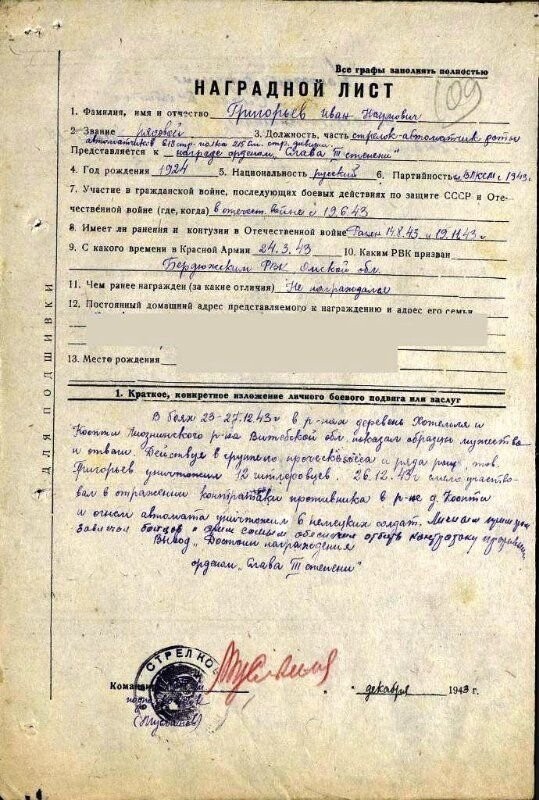 Все графы заполнять полностью
109
НАГРАДНОЙ ЛИСТ
1. Фамилия, имя и отчество Григорьев Иван Наумович
2. Звание рядовой 3. Должность, часть стрелок-автоматчик роты
автоматчиков 618 стр. полка 215 стр. дивизии
Представляется к награде орденом „Слава III степени"
4. Год рождения 1924 5. Национальность русский 6. Партийность ВЛКСМ с 1943 г.
7. Участие в гражданской войне, последующих боевых действиях по защите СССР и Оте-
чественной войне (где, когда) в отечест. войне с 19.6.43
8. Имеет ли ранения и контузии в Отечественной войне Ранен 14.8.43 и 19.11.43 г
9. С какого времени в Красной Армии 24.3.43 10. Каким РВК призван
Бердюжским РВК Омской обл.
11. Чем ранее награжден (за какие отличия) Не награждался
12. Постоянный домашний адрес представляемого к награждению и адрес его семьи
13. Место рождения
ДЛЯ ПОДШИВКИ
1. Краткое, конкретное изложение личного боевого подвига или заслуг
В боях 23-27.12.43 г в р-нах деревень и
Лиозненского р-на Витебской обл. показал образцы мужества
и отваги. Действуя в группе и ряда рощ тов.
Григорьев уничтожил 12 гитлеровцев. 26.12.43 г смело участво-
вал в отражении контратаки противника в р-не д.
и огнем автомата уничтожил 6 немецких солдат. Личным
бойцов и этим самым обеспечил отбить контратаку
Вывод. Достоин награждения
орденом „Слава III степени"
СТРЕЛКО
Коман
декабря 1943 г.